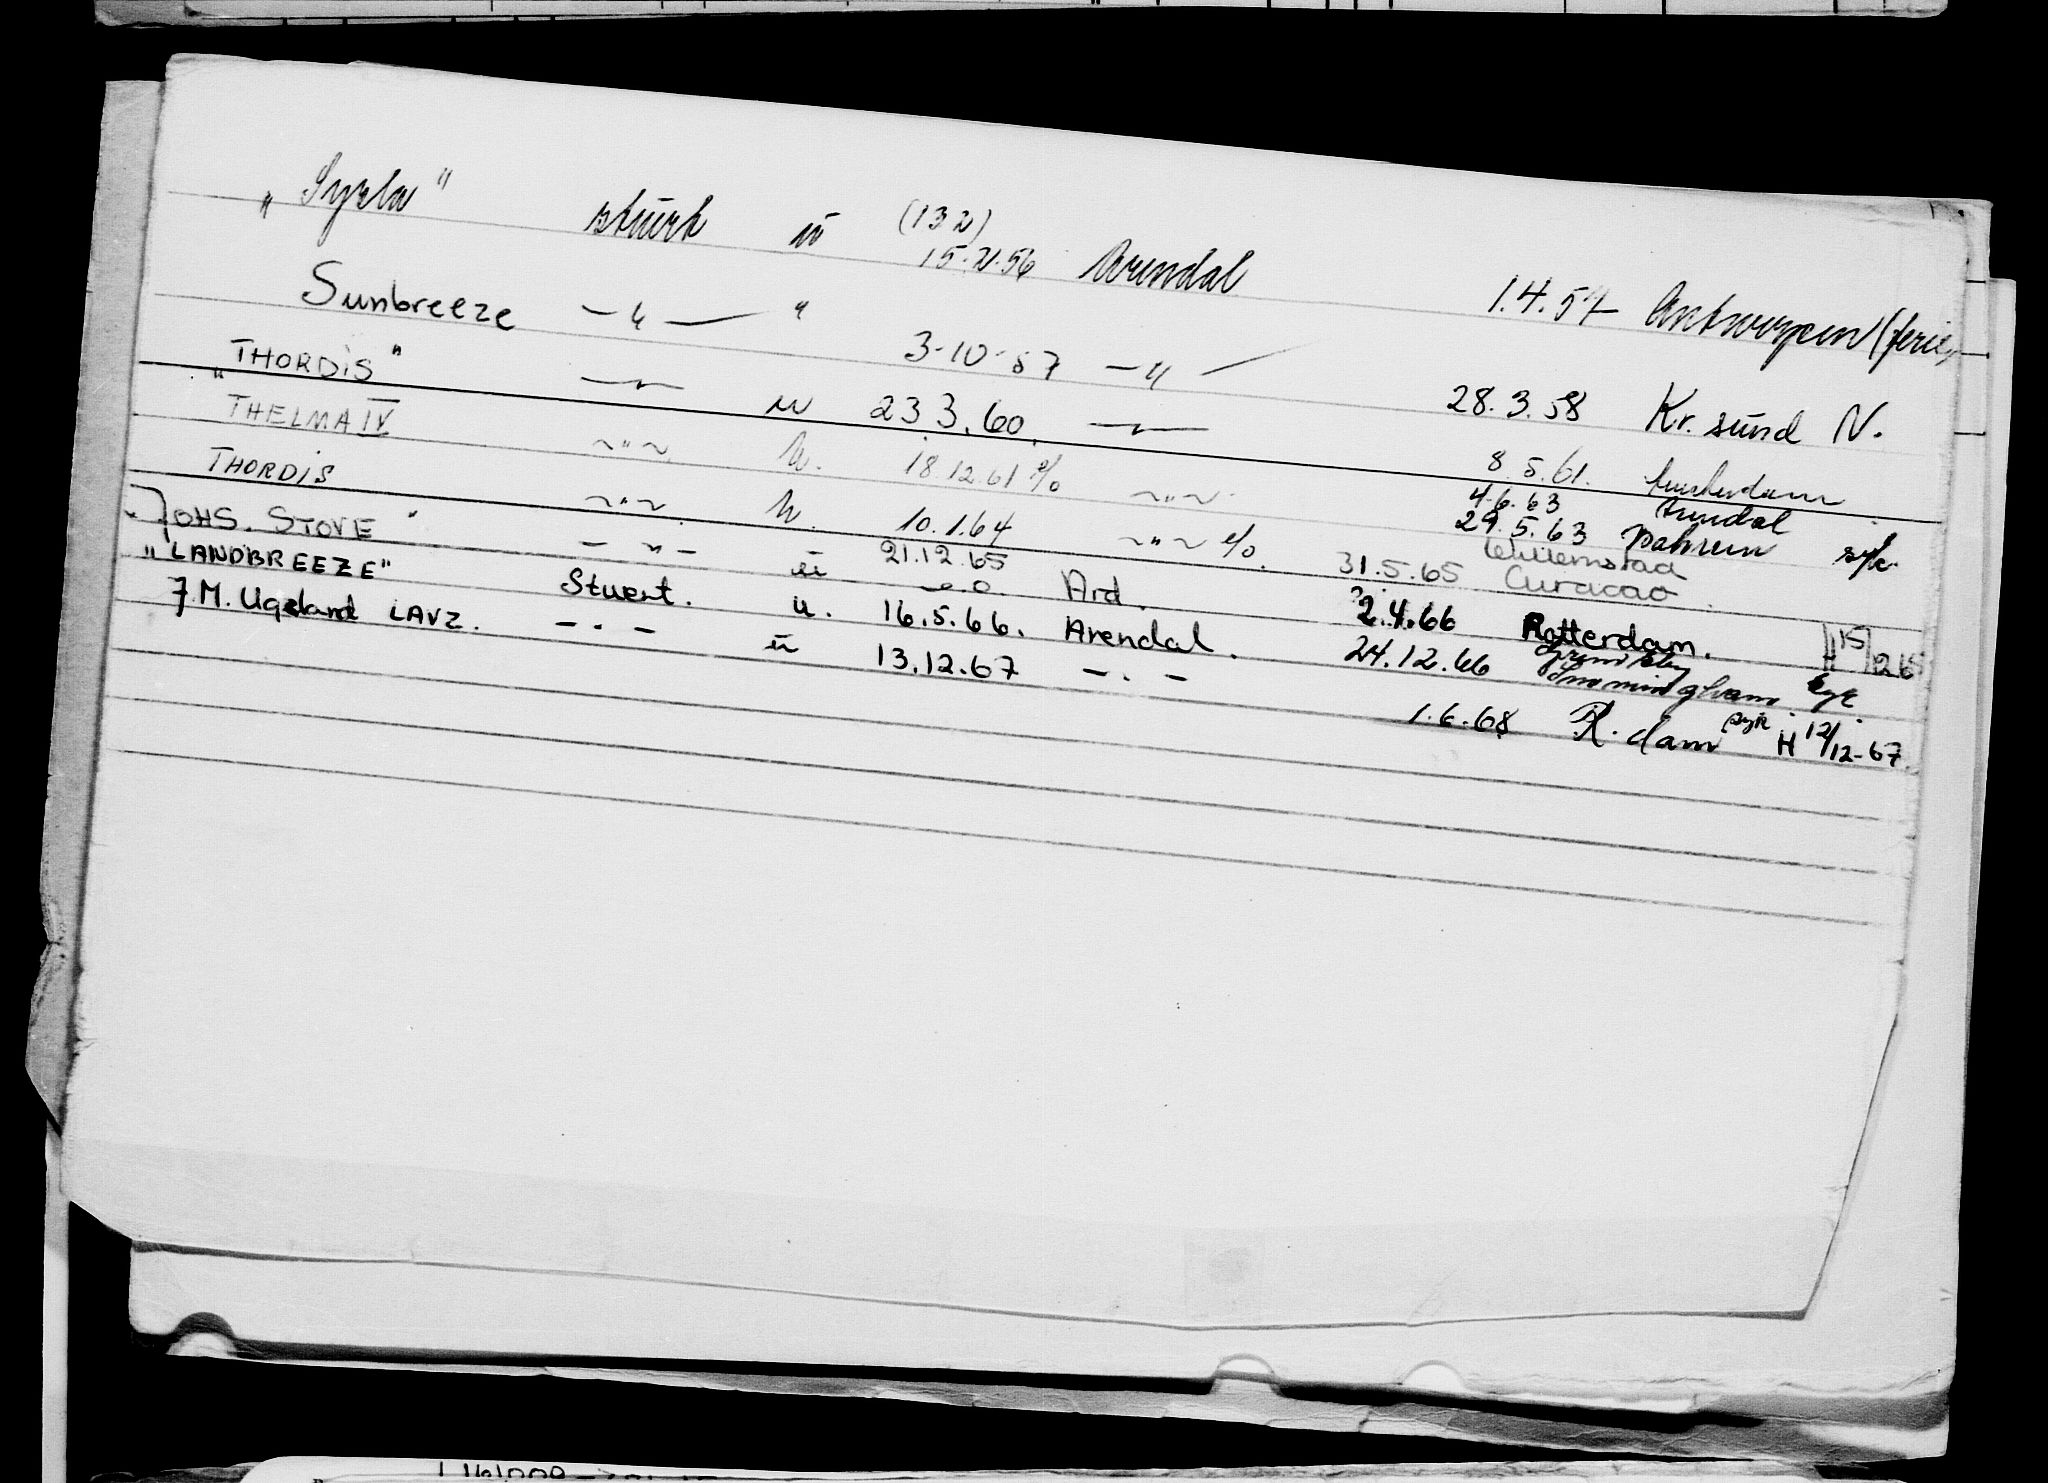 „Syrla" stürt ü (132) 15.2.56 Arendal 1.4.57 Antwerpen (ferie)
Sunbreeze —„— " 3-10-57 —„— 28.3.58 Kr. sünd N.
"THORDIS" —"— u 23 3.60. —"— 8 5.61. Amsterdam
THELMA IV ~"~ u. 18.12.61 e/o ~"~ 4.6.63 Arendal
29.5.63 Bahrein syk.
THORDIS ~"~ u. 10.1.64 ~"~ e/o. 31.5.65 Willemstad Curacao.
"JOHS. STOVE" — " — ü 21.12.65 e.o. Ard. 2.4.66 Rotterdam. H 15/12 65
"LANDBREEZE" Stuert. u. 16.5.66. Arendal. 24.12.66 syk
J.M. Ugland LAVZ. — . — ü 13.12.67 — . — 1.6.68 R.dam syk H 12/12-67.